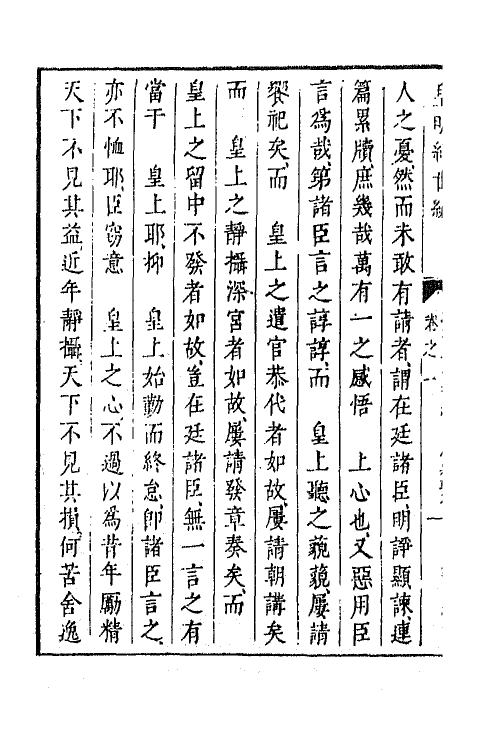 皇明經世編　卷之一
人之憂然而未敢有請者謂在廷諸臣明諍顯諫連
篇累牘庶幾哉萬有一之感悟　上心也又惡用臣
言為哉第諸臣言之諄諄而　皇上聽之藐藐屢請
饗祀矣而　皇上之遣官恭代者如故屢請朝講矣
而　皇上之靜攝深宮者如故屢請發章奏矣而
皇上之留中不發者如故豈在廷諸臣無一言之有
當于　皇上耶抑　皇上始勤而終怠即諸臣言之
亦不恤耶臣竊意　皇上之心不過以為昔年勵精
天下不見其益近年靜攝天下不見其損何苦舍逸